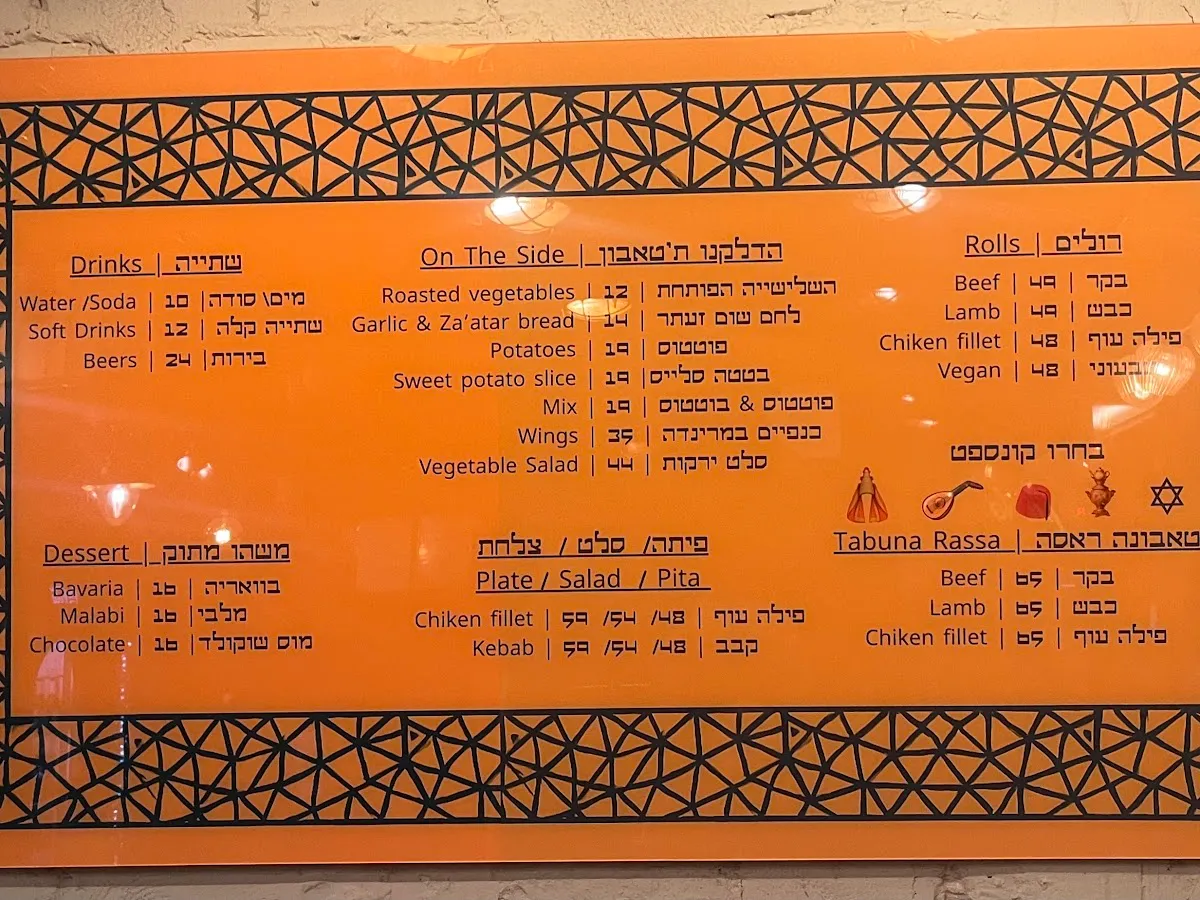 Drinks | שתייה
Water /Soda | 10 | מים\ סודה
Soft Drinks | 12 | שתייה קלה
Beers | 24 | בירות
On The Side | הדלקנו ת'טאבון
Roasted vegetables | 12 | השלישייה הפותחת
Garlic & Za'atar bread | 14 | לחם שום זעתר
Potatoes | 19 | פוטטוס
Sweet potato slice | 19 | בטטה סלייס
Mix | 19 | פוטטוס & בוטטוס
Wings | 35 | כנפיים במרינדה
Vegetable Salad | 44 | סלט ירקות
Rolls | רולים
Beef | 49 | בקר
Lamb | 49 | כבש
Chiken fillet | 48 | פילה עוף
Vegan | 48 | טבעוני
בחרו קונספט
Dessert | משהו מתוק
Bavaria | 16 | בוואריה
Malabi | 16 | מלבי
Chocolate | 16 | מוס שוקולד
פיתה/ סלט / צלחת
Plate / Salad / Pita
Chiken fillet | 59 /54 /48 | פילה עוף
Kebab | 59 /54 /48 | קבב
Tabuna Rassa | טאבונה ראסה
Beef | 65 | בקר
Lamb | 65 | כבש
Chiken fillet | 65 | פילה עוף